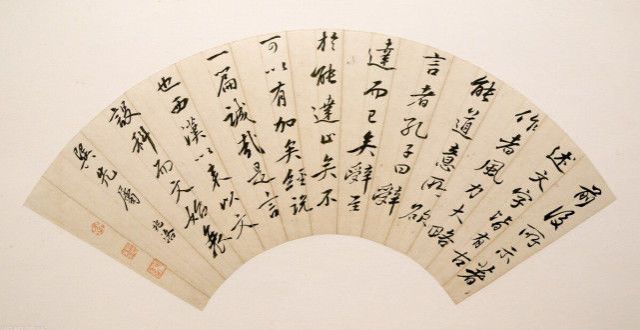 前後所示著
述文字皆有古
作者風力大略
能道意所欲
言者孔子曰辭
達而已矣辭至
於能達止矣不
可以有加矣經說
一篇誠哉是言
也西漢以來以文
設科而文始衰
先屬